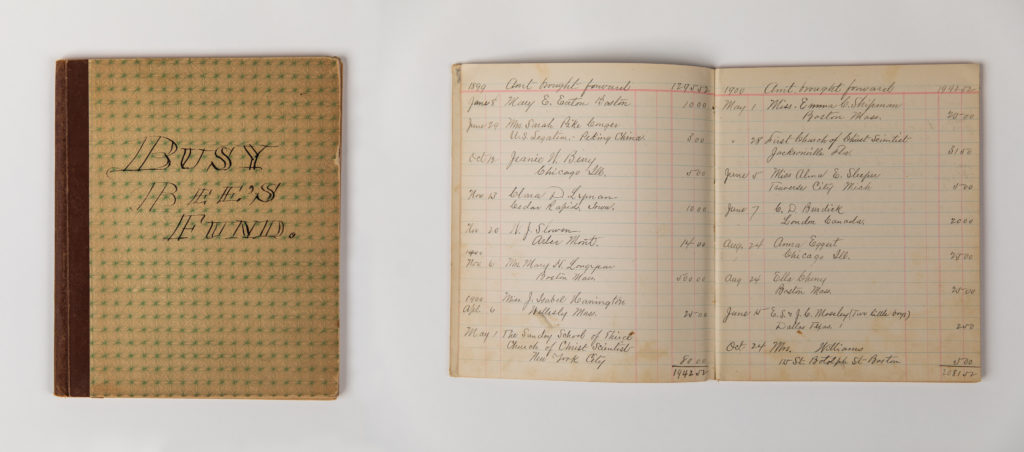 BUSY
BEE'S
FUND.
1899 Amt brought forward 1295.52
June 8 Mary E. Eaton Boston 10.00
June 29 Mrs Sarah Pike Conger
U.S. Legation, Peking China. 5.00
Oct 13 Jeanie H. Chicago Ill. 5.00
Nov 13 Clara D. Lyman
Cedar Rapids, Iowa. 10.00
Nov 20 H. J. Mont. 14.00
Nov 6 Mrs Mary H. Longyear
Boston Mass. 500.00
1900 Miss J. Isabel Harrington
Apl. 6 Mass. 25.00
May 1 The Sunday School of Third
Church of Christ Scientist
New York City 80.00
1942.52
1900 Am't brought forward 1942.52
May 1 Miss. Emma C. Shipman
Boston Mass. 20.00
" 28 First Church of Christ Scientist
Jacksonville Fla. 31.50
June 5 Miss Alma E. Sleeper
Traverse City Mich 5.00
June 7 E. D. Burdick
London Canada. 20.00
Aug. 24 Anna Eggert
Chicago Ill. 25.00
Aug 24 Ella
Boston Mass. 25.00
June 15 E.S. & J.C. Moseley (Two little boys)
Dallas Texas 2.50
Oct 24 Mrs. Williams
St. Botolph St. Boston 5.00
2081.52